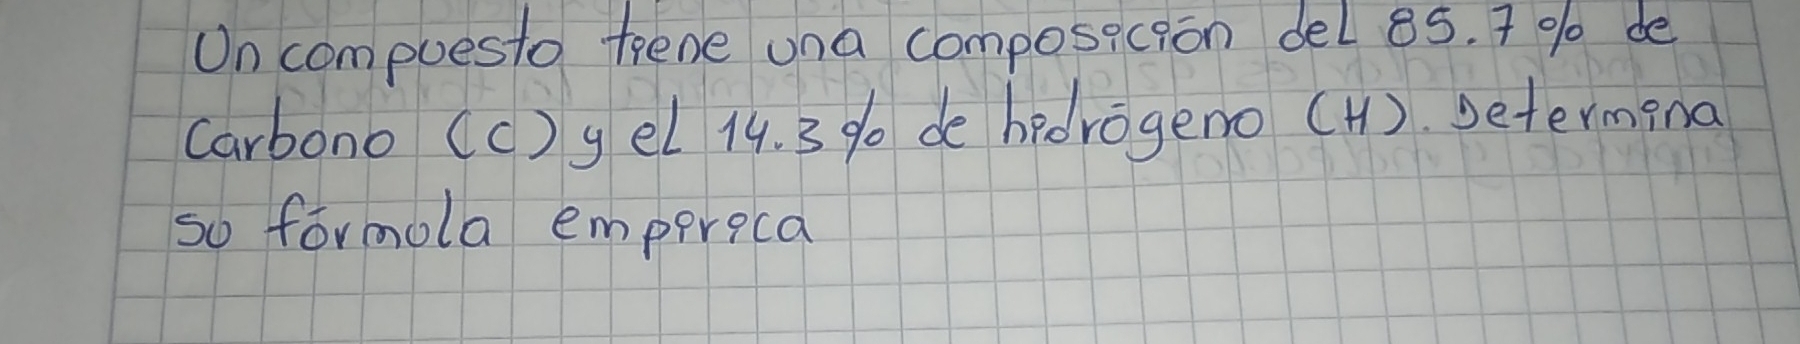 Un compuesto tiene una composición del 85.7% de
Carbono (C) y el 14.3% de hidrógeno (H). Determina
su fórmula empirica